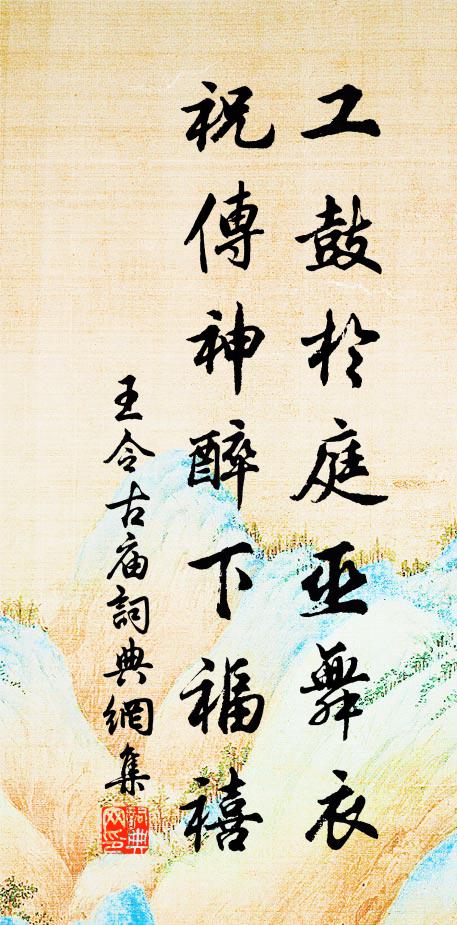 工鼓於庭巫舞衣
祝傳神醉下福禧
王令古庙詞典網集
詞典
网印